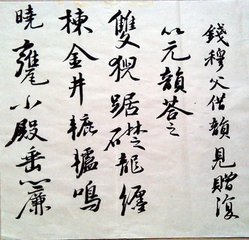 錢穆父借韻見贈復
以元韻答之
雙猊踞礎龍纏
棟金井轆轤鳴
曉甕小殿垂簾